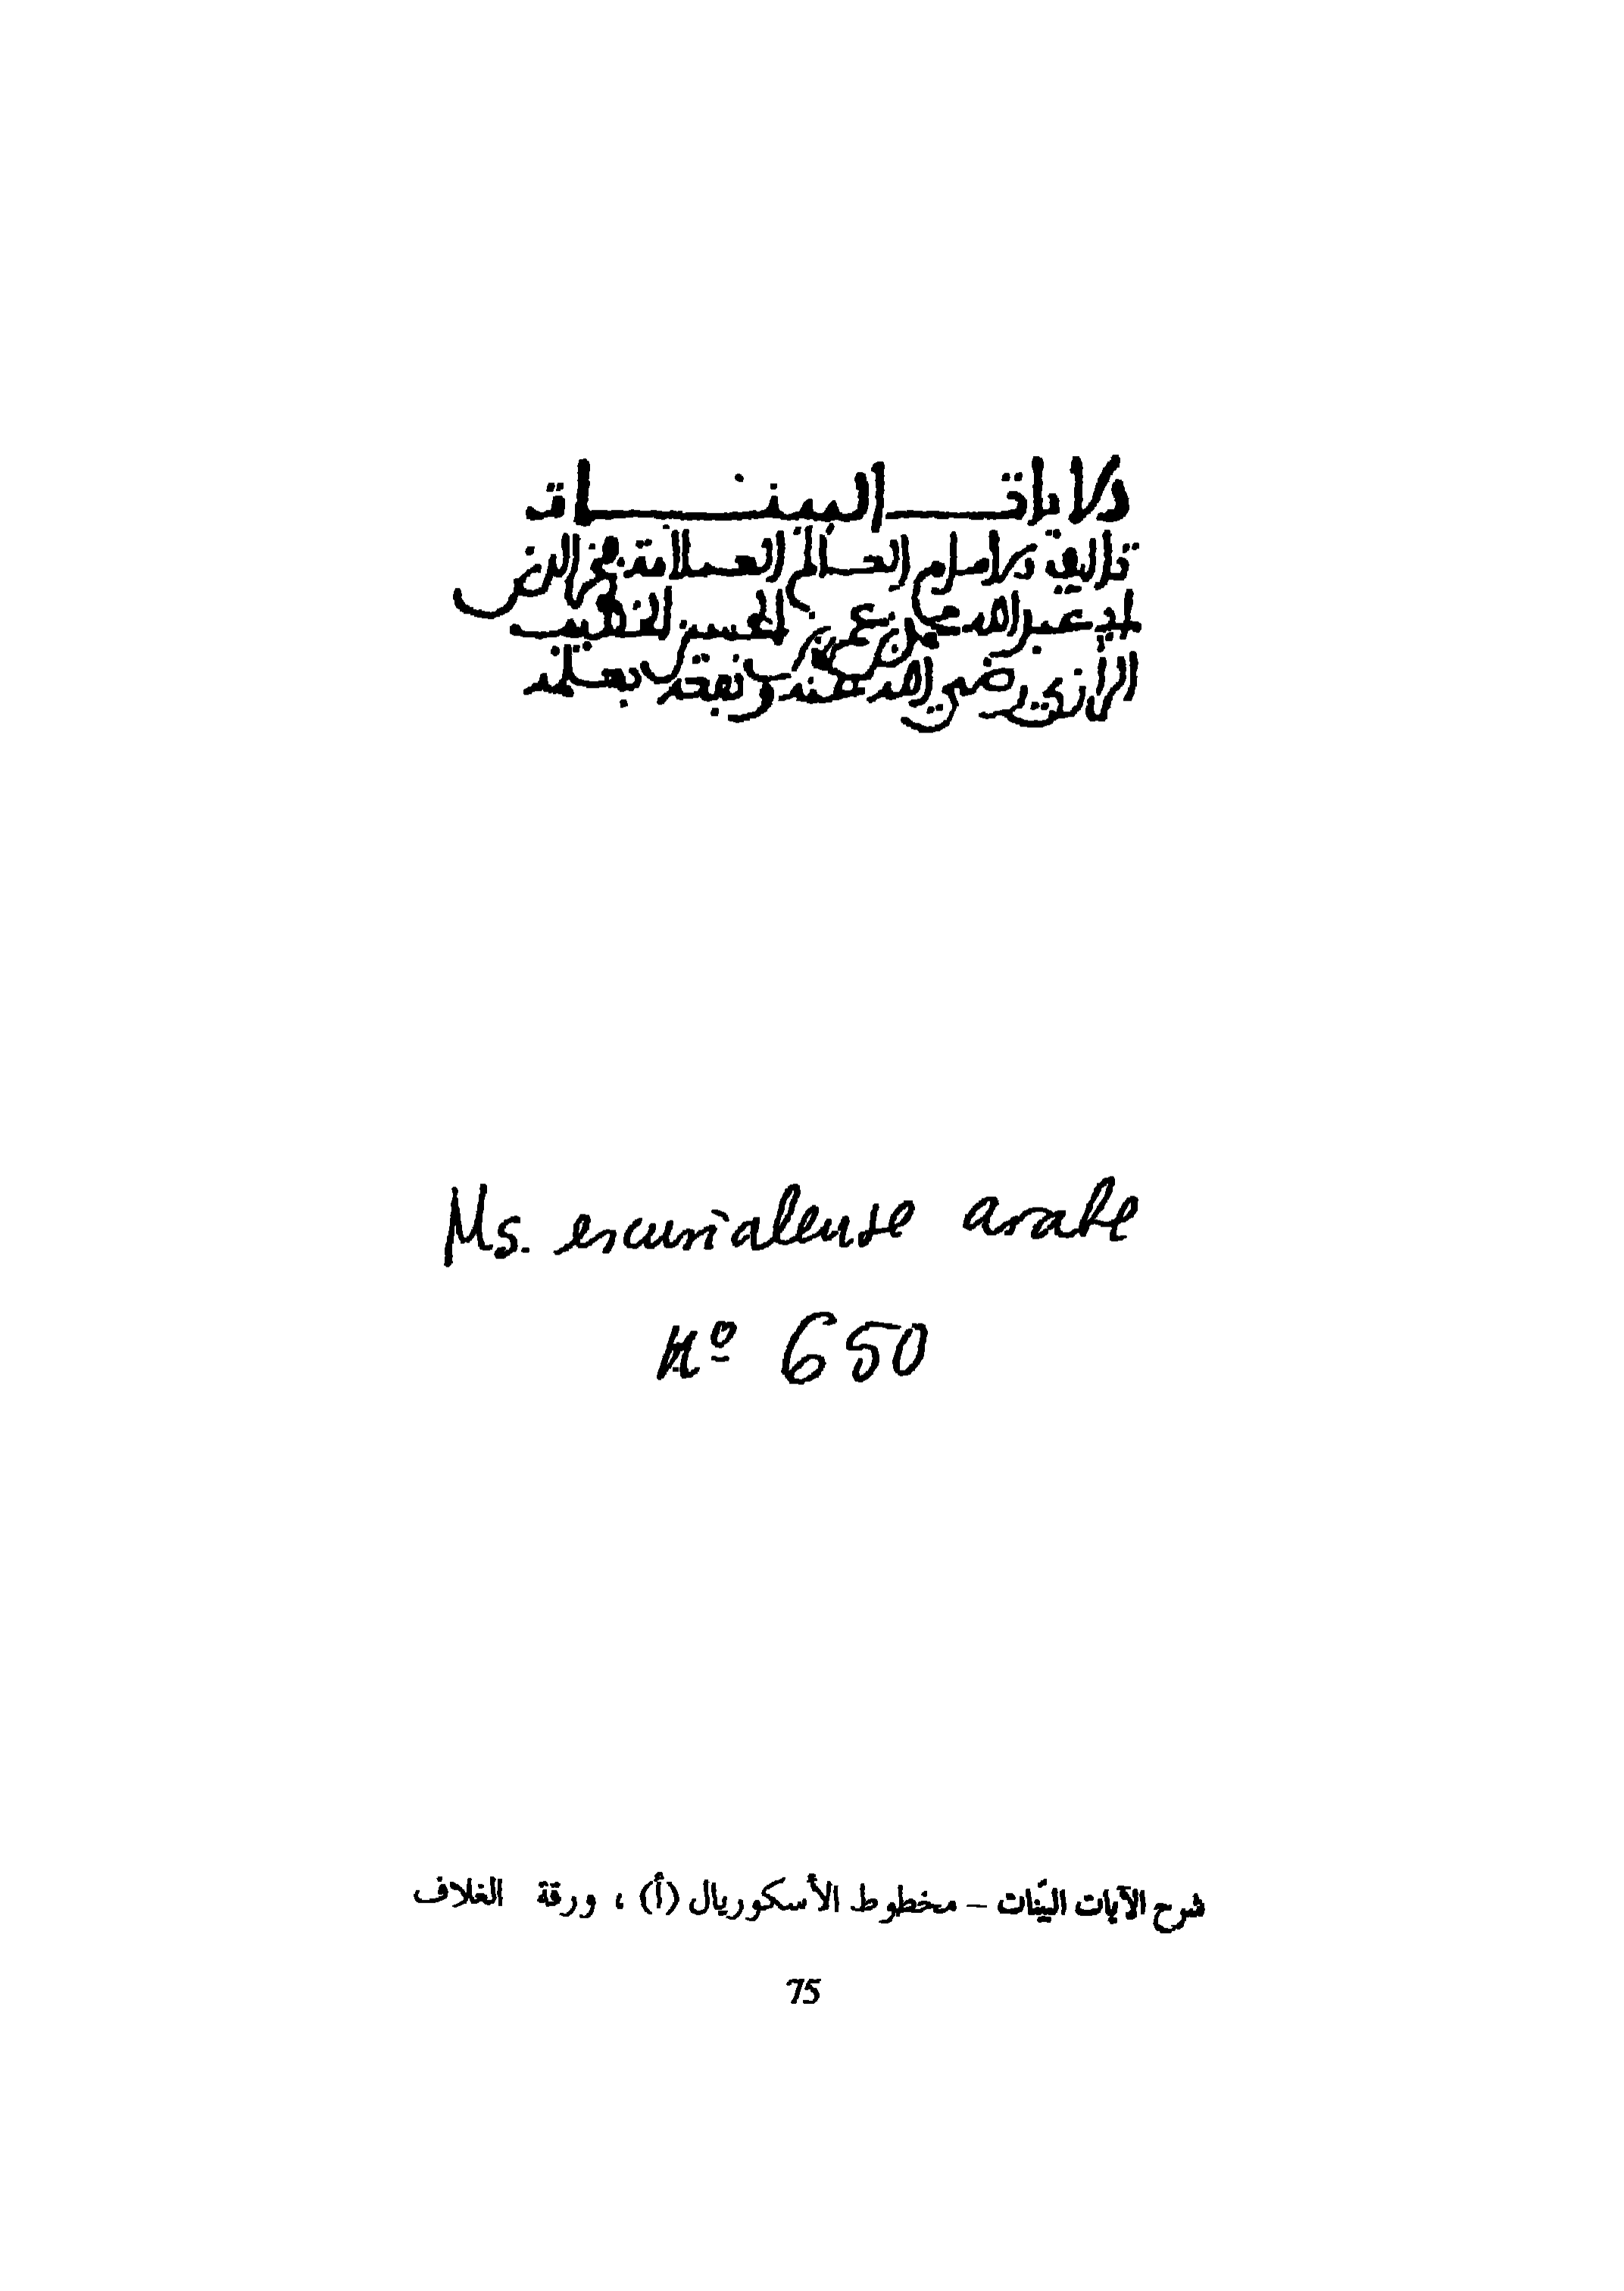 الايات البينات
تاليف الامام العالم العلامة فخر الدين
ابي عبد الله محمد بن عمر بن الحسين الخطيب
الرازي رضي الله عنه ونفعنا بعلمه
Ms. escurialense arabe
nº 650
شرح الآيات البيّنات – مخطوط الأسكوريال (أ) ، ورقة الغلاف
75